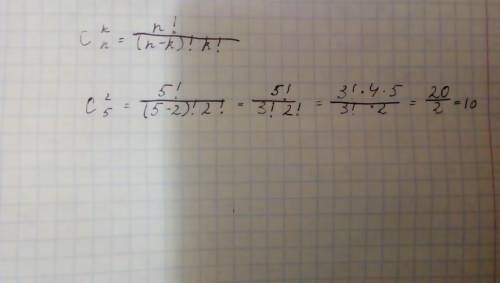 C_n^k = n! / (n-k)! k!
C_5^2 = 5! / (5-2)! 2! = 5! / 3! 2! = 3! * 4 * 5 / 3! * 2 = 20 / 2 = 10